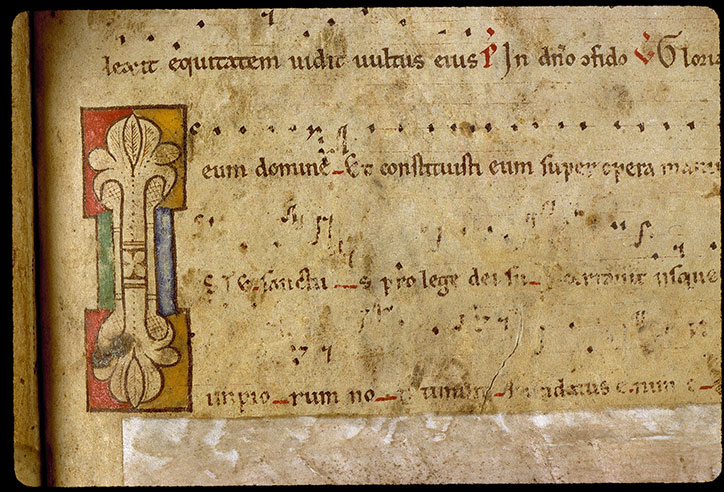 lexit equitatem uidit uultus eius P̃ In dño ɔfido V̄ Gloria
eum domine Et constituisti eum super opera manu
STE sanctus pro lege dei su certauit usque
impiorum no timuit fundatus enim e